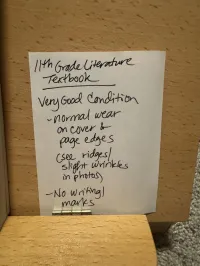 11th Grade Literature
Textbook
Very Good Condition
- normal wear
on cover &
page edges
(see ridges/
slight wrinkles
in photos)
- No writing/
marks